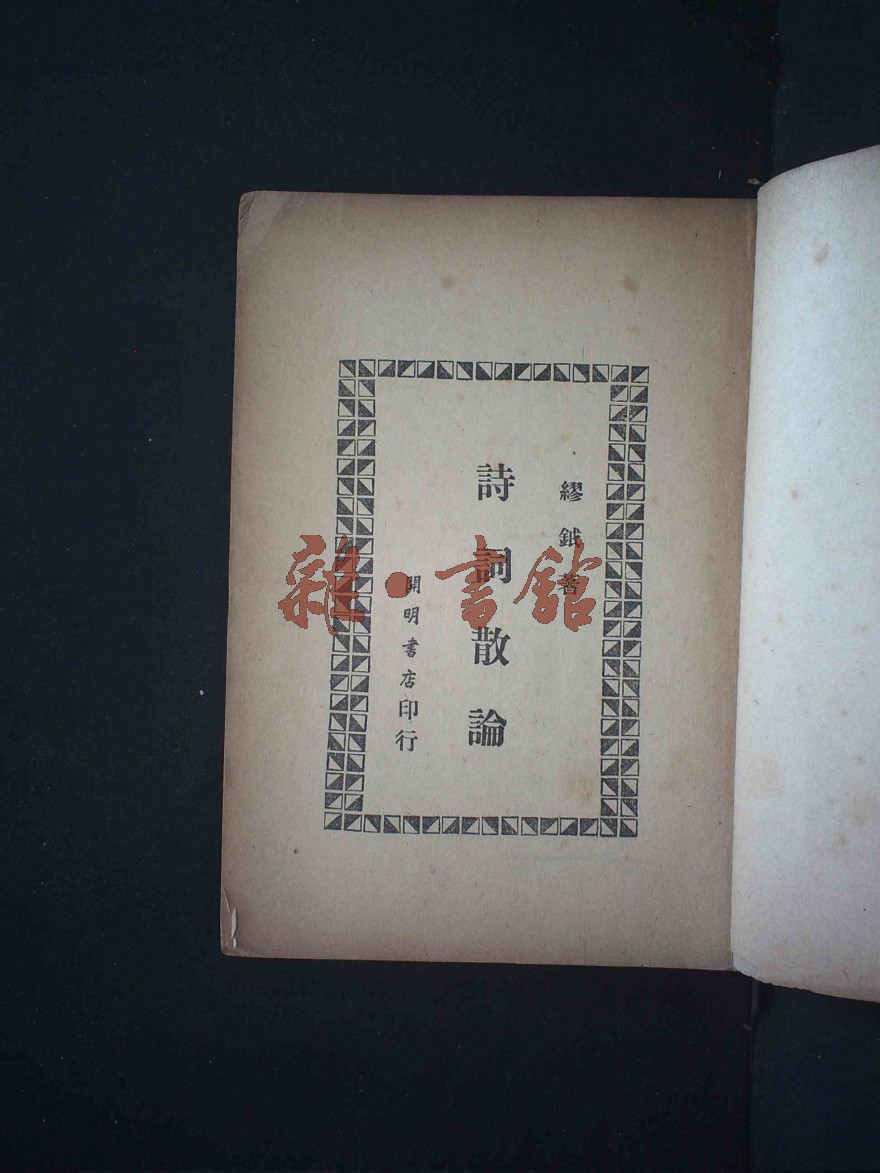 繆鉞著
詩詞散論
開明書店印行
雜·書館